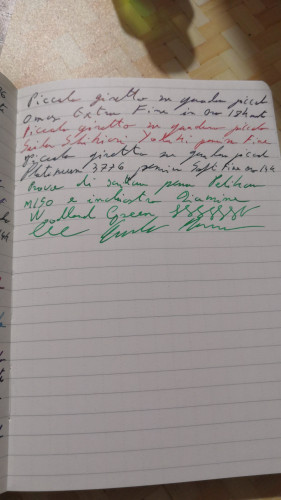 Piccolo giretto su quaderno piccolo
Omas Extra Fine in oro 18 kat
Piccolo giretto su quaderno piccolo
Sailor Shikiori Yodaki pennino Fine
Piccolo giretto su quaderno piccolo
Platinum 3776 pennino Soft Fine
Prova di scrittura penna Pelikan
M150 e inchiostro Diamine
Woodland Green